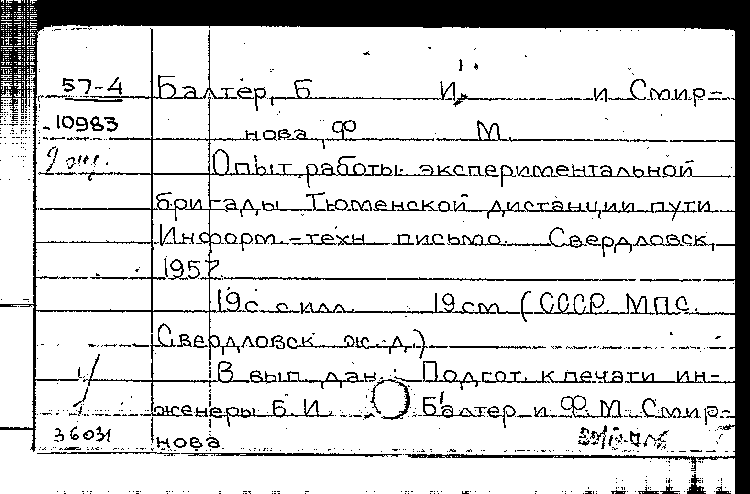 57-4 Балтер, Б И. и Смир-
10983 нова, Ф М.
Опыт работы экспериментальной
бригады Тюменской дистанции пути
Информ.-техн письмо. Свердловск,
1957
19с с илл. 19см (СССР. МПС.
Свердловск ж.д.)
В вып. дан.: Подгот. к печати ин-
женеры Б. И. Балтер и Ф. М. Смир-
36031 нова